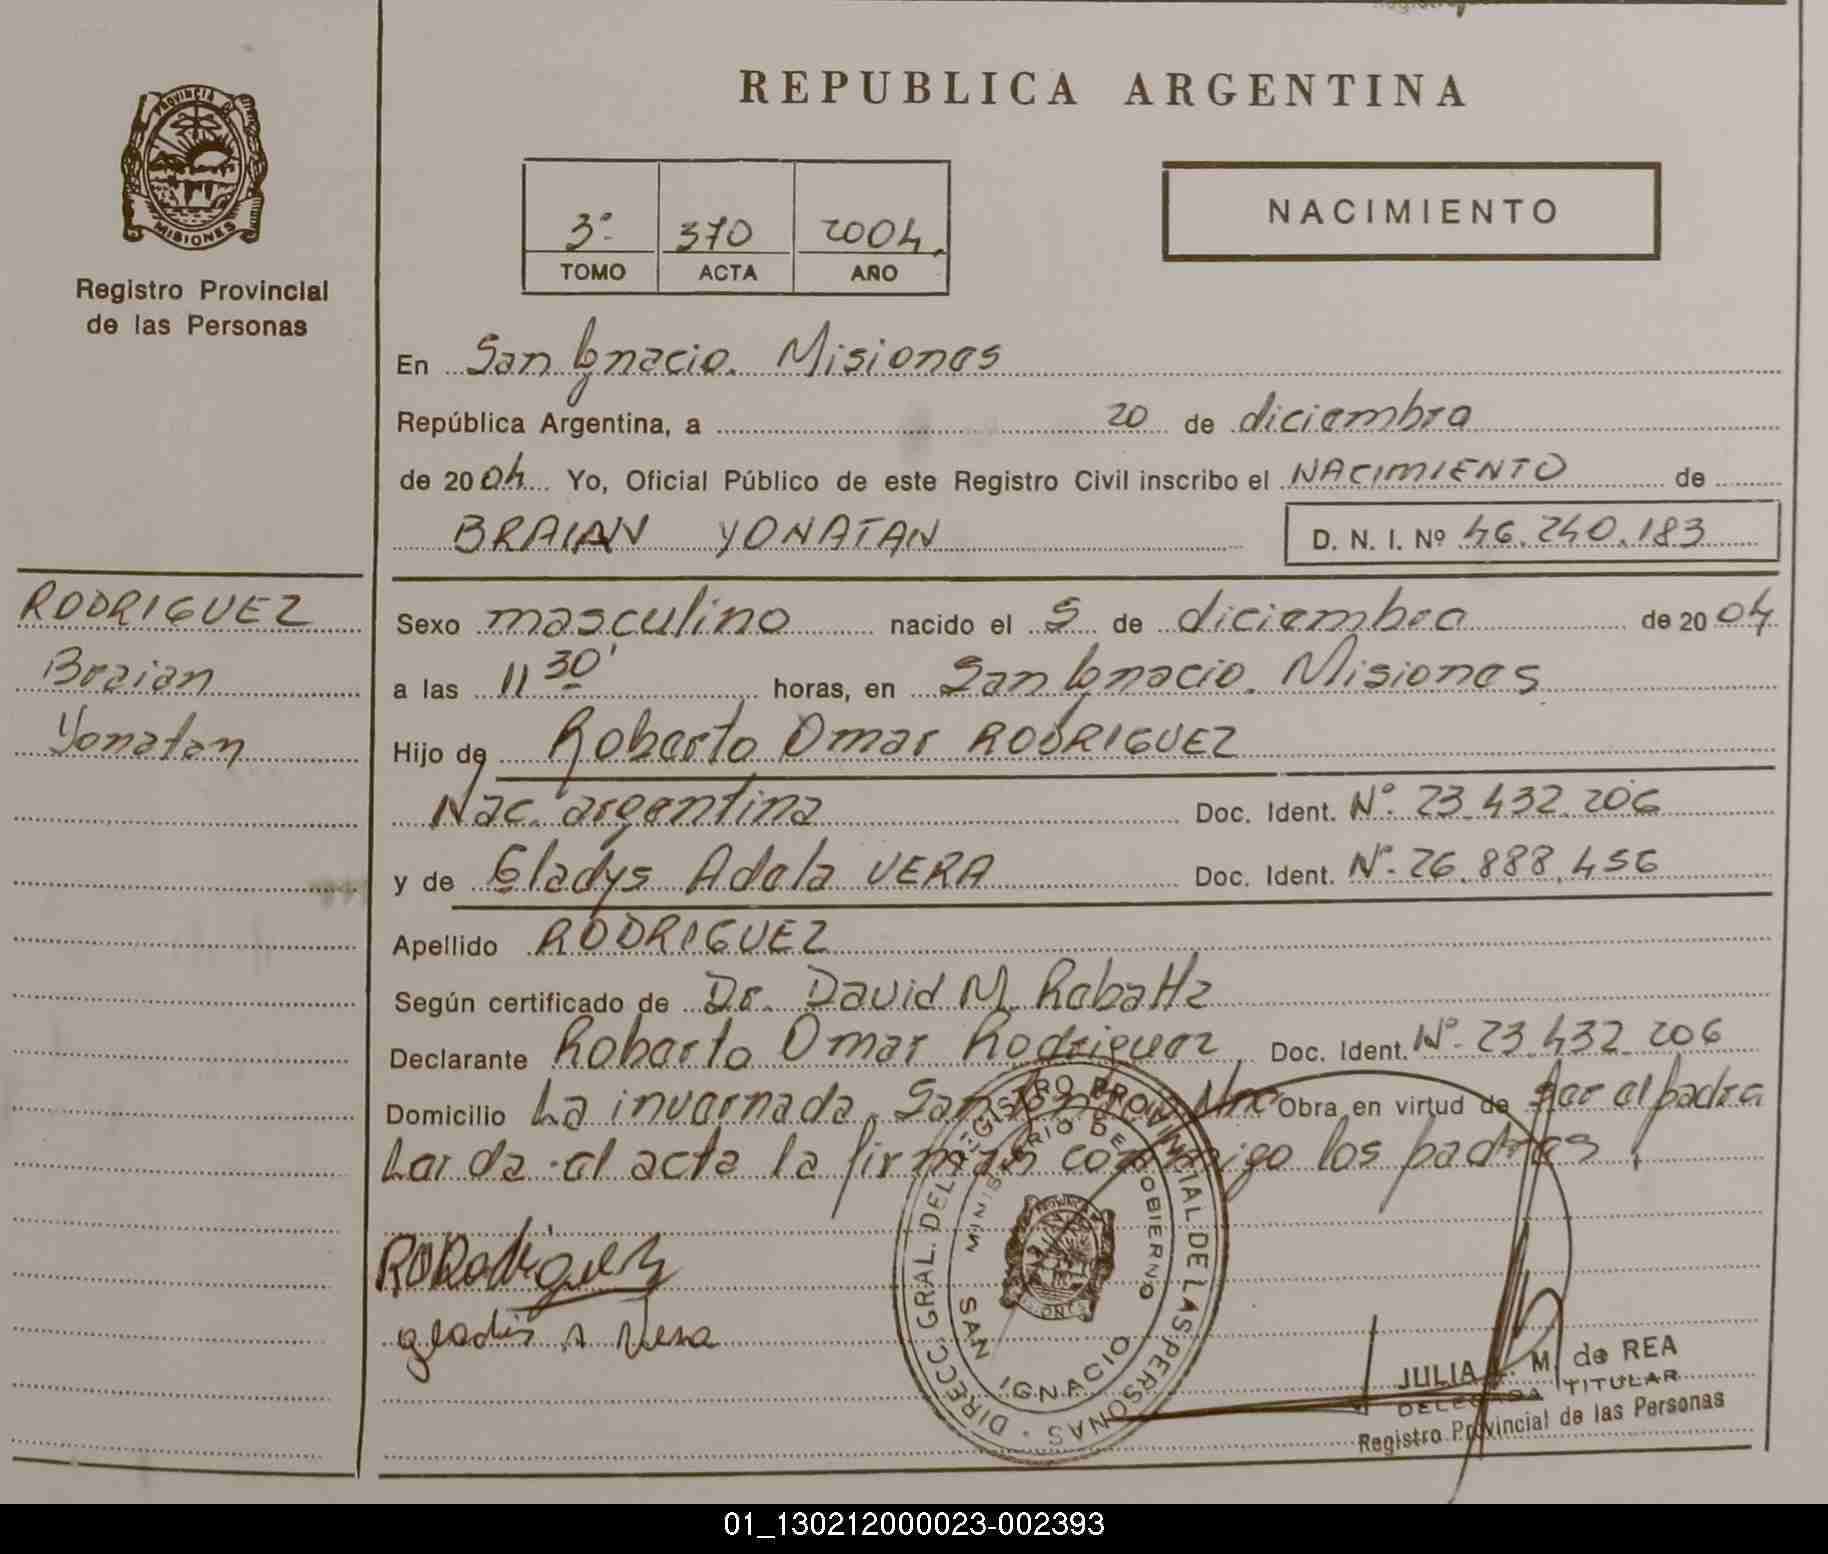 REPUBLICA ARGENTINA
PROVINCIA DE
MISIONES
Registro Provincial
de las Personas
3º 370 2004.
TOMO ACTA AÑO
NACIMIENTO
En San Ignacio. Misiones
República Argentina, a 20 de diciembre
de 2004 Yo, Oficial Público de este Registro Civil inscribo el NACIMIENTO de
BRAIAN YONATAN D. N. I. Nº 46.240.183
RODRIGUEZ
Braian
Yonatan
Sexo masculino nacido el 5 de diciembre de 2004
a las 11 30' horas, en San Ignacio. Misiones
Hijo de Roberto Omar RODRIGUEZ
Nac. argentina Doc. Ident. Nº. 23.432.206
y de Gladys Adela VERA Doc. Ident. Nº. 26.888.456
Apellido RODRIGUEZ
Según certificado de Dr. David M. Rabatta
Declarante Roberto Omar Rodriguez Doc. Ident. Nº. 23.432.206
Domicilio La invernada. San Obra en virtud de ser el padre
Leida el acta la firman conmigo los padres
RORodriguez
gladis A Vera
DIRECC. GRAL. DEL REGISTRO PROVINCIAL DE LAS PERSONAS
MINISTERIO DE GOBIERNO
SAN IGNACIO
JULIA M. de REA
DELEGADA TITULAR
Registro Provincial de las Personas
01_130212000023-002393